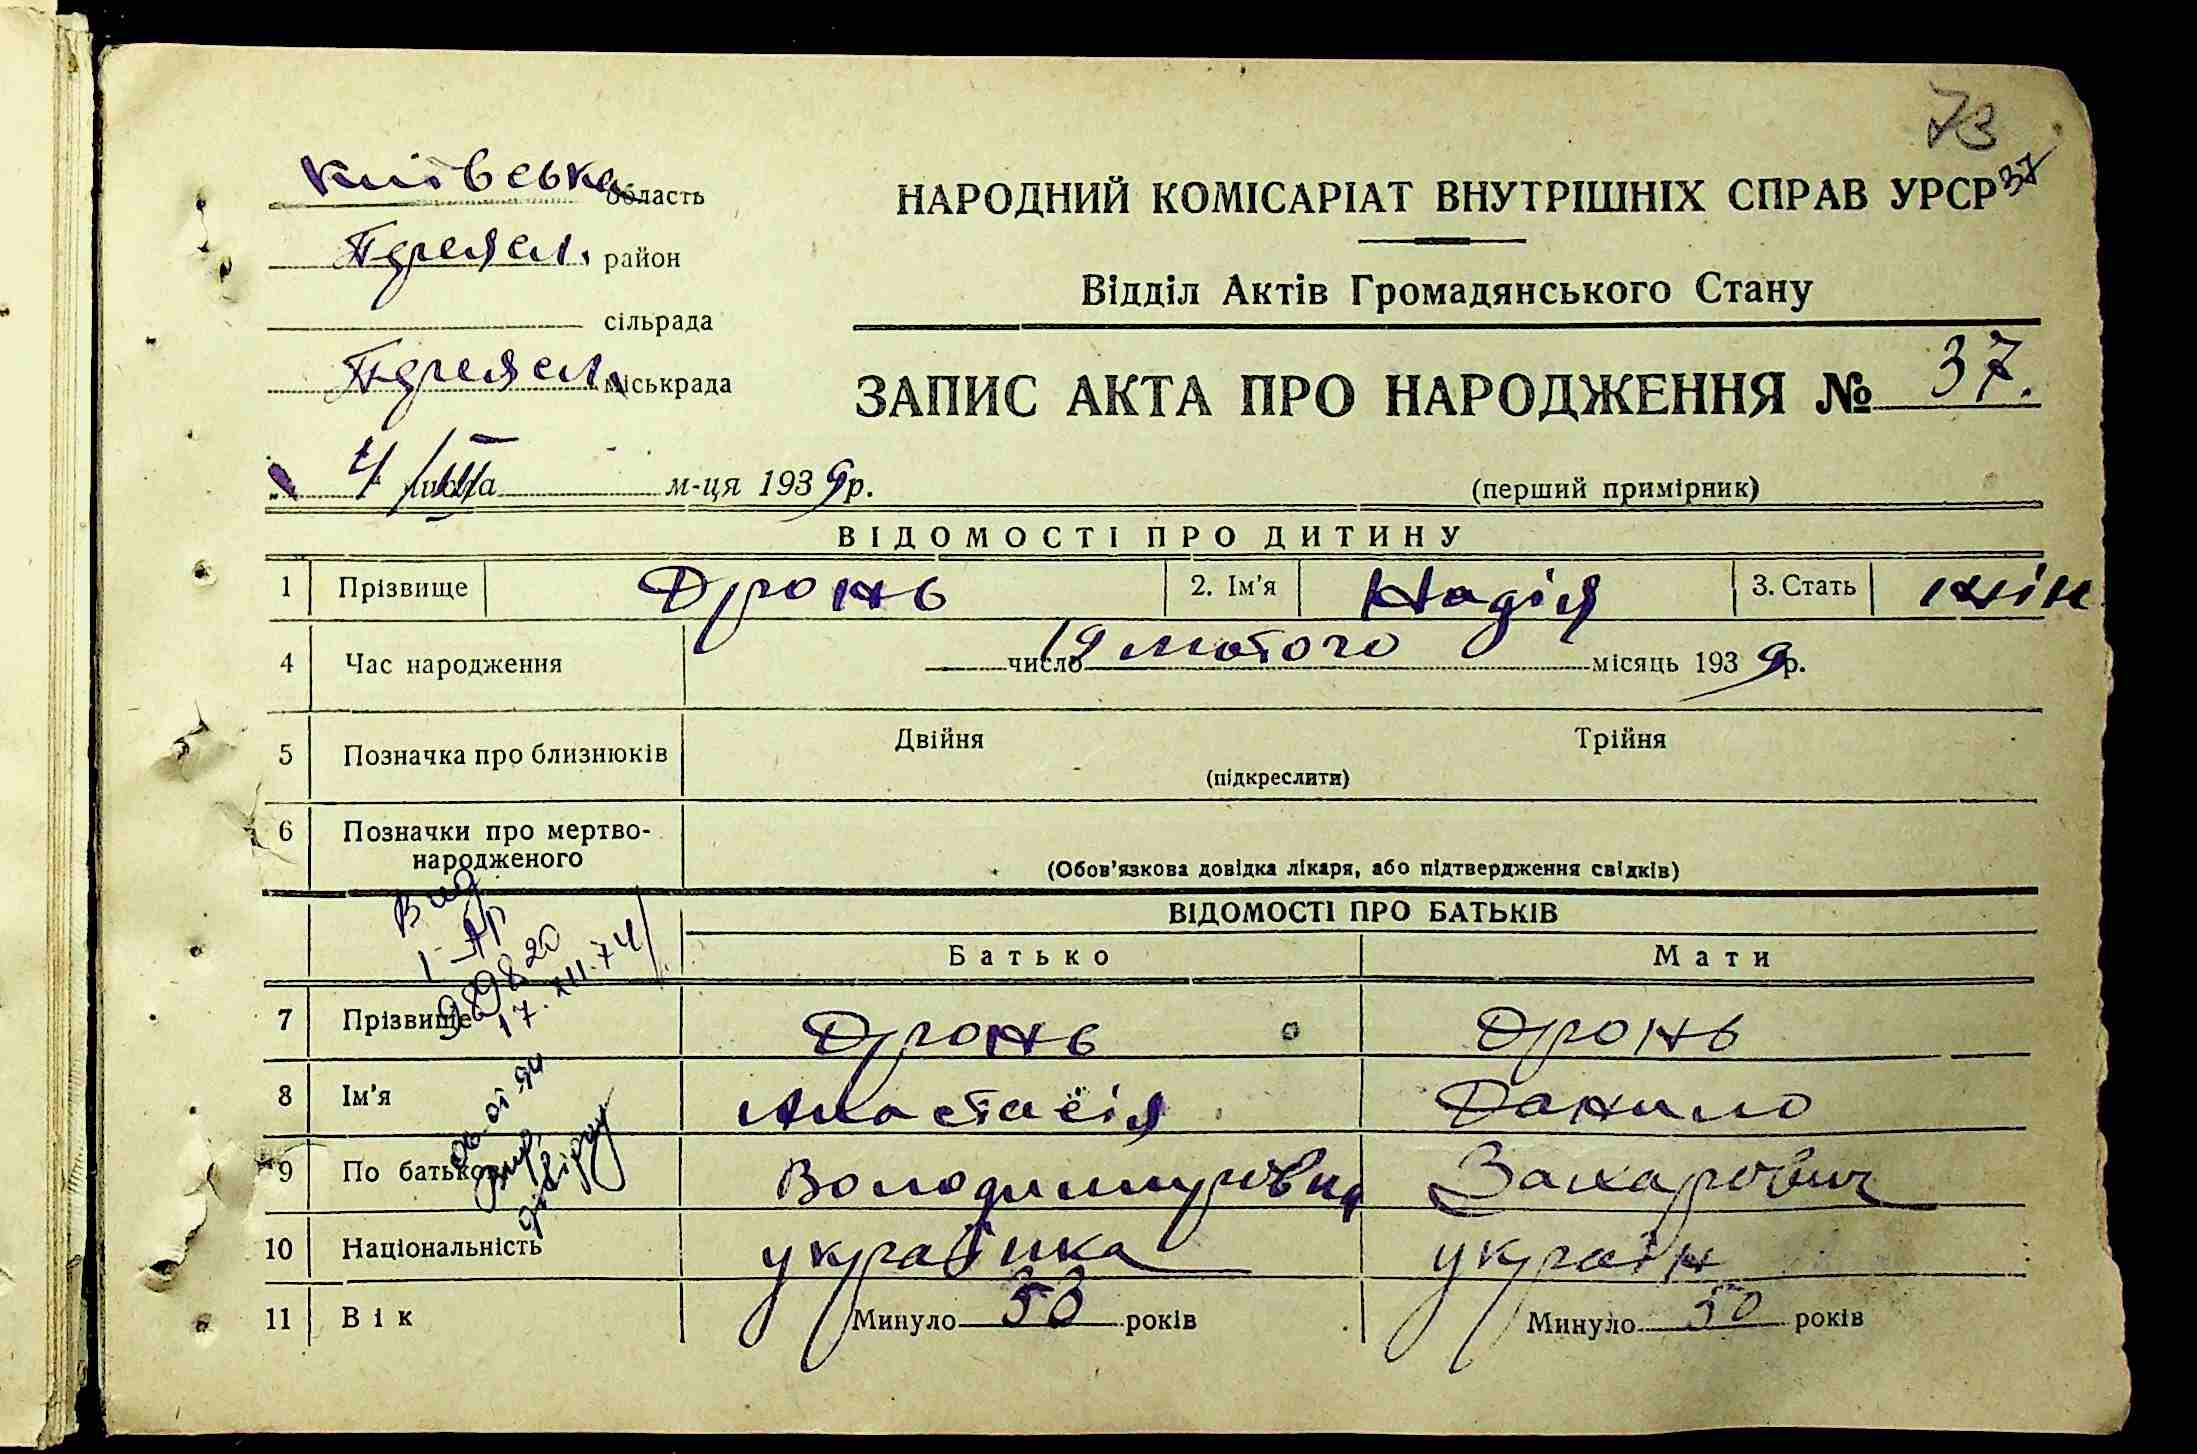 73
Київська область
НАРОДНИЙ КОМІСАРІАТ ВНУТРІШНІХ СПРАВ УРСР 37
район
Відділ Актів Громадянського Стану
сільрада
міськрада
ЗАПИС АКТА ПРО НАРОДЖЕННЯ № 37.
„ 4/III числа м-ця 1939 р.
(перший примірник)
ВІДОМОСТІ ПРО ДИТИНУ
1 Прізвище Дронь 2. Ім'я Надія 3. Стать жін
4 Час народження 19 лютого число місяць 1939 р.
5 Позначка про близнюків Двійня Трійня
(підкреслити)
6 Позначки про мертво-
народженого
(Обов'язкова довідка лікаря, або підтвердження свідків)
ВІДОМОСТІ ПРО БАТЬКІВ
Батько Мати
17.XII.74
7 Прізвище Дронь Дронь
8 Ім'я Анастасія Данило
9 По батькові Володимировна Захарович
10 Національність українка українк
11 Вік Минуло 50 років Минуло 50 років